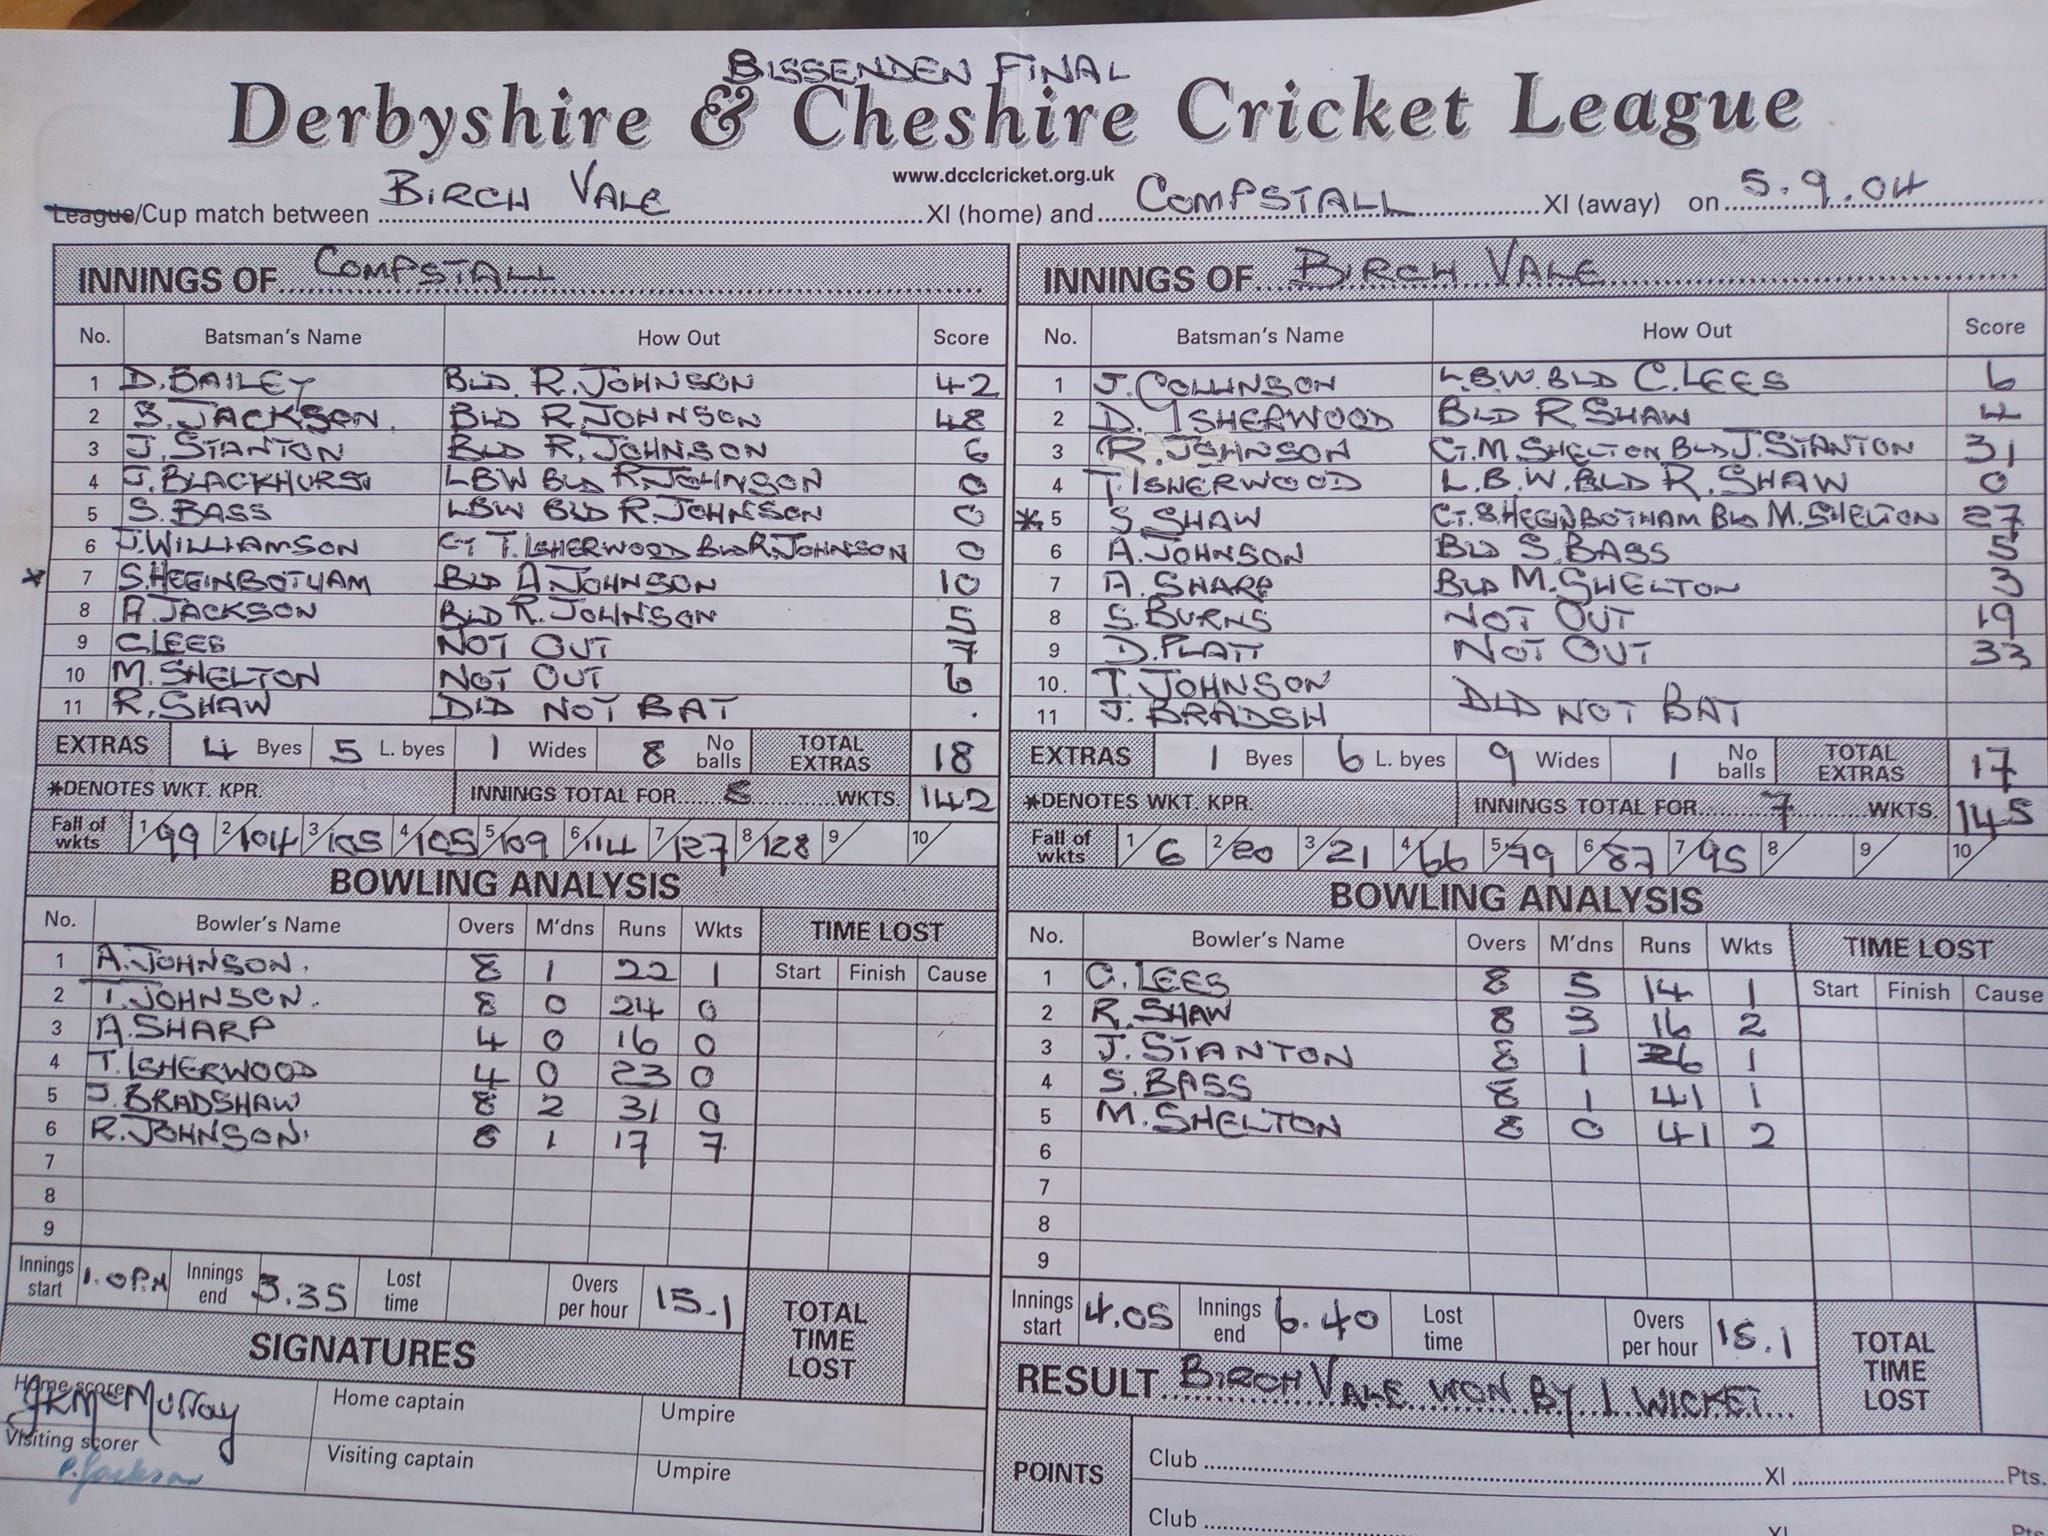 BISSENDEN FINAL
Derbyshire & Cheshire Cricket League
www.dcclcricket.org.uk
League/Cup match between BIRCH VALE XI (home) and COMPSTALL XI (away) on 5.9.04
INNINGS OF COMPSTALL
No. Batsman's Name How Out Score
1 D. BAILEY BLD. R. JOHNSON 42
2 S. JACKSON. BLD R. JOHNSON 48
3 J. STANTON BLD R. JOHNSON 6
4 J. BLACKHURST LBW BLD R. JOHNSON 0
5 S. BASS LBW BLD R. JOHNSON 0
6 J. WILLIAMSON CT T. ISHERWOOD BLD R. JOHNSON 0
* 7 S. HEGINBOTHAM BLD A. JOHNSON 10
8 A JACKSON BLD R. JOHNSON 5
9 C. LEES NOT OUT 7
10 M. SHELTON NOT OUT 6
11 R. SHAW DID NOT BAT .
EXTRAS 4 Byes 5 L. byes 1 Wides 8 No balls TOTAL EXTRAS 18
*DENOTES WKT. KPR. INNINGS TOTAL FOR 8 WKTS. 142
Fall of wkts 1/99 2/104 3/105 4/105 5/109 6/114 7/127 8/128 9/ 10/
BOWLING ANALYSIS
No. Bowler's Name Overs M'dns Runs Wkts TIME LOST
Start Finish Cause
1 A. JOHNSON. 8 1 22 1
2 T. JOHNSON. 8 0 24 0
3 A. SHARP 4 0 16 0
4 T. ISHERWOOD 4 0 23 0
5 J. BRADSHAW 8 2 31 0
6 R. JOHNSON. 8 1 17 7
7
8
9
Innings start 1.0 P.M Innings end 3.35 Lost time Overs per hour 15.1 TOTAL TIME LOST
SIGNATURES
Home scorer JK McMurray Home captain Umpire
Visiting scorer P. Jackson Visiting captain Umpire
INNINGS OF BIRCH VALE
No. Batsman's Name How Out Score
1 J. COLLINSON L.B.W. BLD C. LEES 6
2 D. ISHERWOOD BLD R SHAW 4
3 R. JOHNSON CT. M. SHELTON BLD J. STANTON 31
4 T. ISHERWOOD L.B.W. BLD R. SHAW 0
* 5 S. SHAW CT. S. HEGINBOTHAM BLD M. SHELTON 27
6 A. JOHNSON BLD S. BASS 5
7 A. SHARP BLD M. SHELTON 3
8 S. BURNS NOT OUT 19
9 D. PLATT NOT OUT 33
10. T. JOHNSON
11 J. BRADSH DID NOT BAT
EXTRAS 1 Byes 6 L. byes 9 Wides 1 No balls TOTAL EXTRAS 17
*DENOTES WKT. KPR. INNINGS TOTAL FOR 7 WKTS. 145
Fall of wkts 1/6 2/20 3/21 4/66 5/79 6/87 7/95 8/ 9/ 10/
BOWLING ANALYSIS
No. Bowler's Name Overs M'dns Runs Wkts TIME LOST
Start Finish Cause
1 C. LEES 8 5 14 1
2 R. SHAW 8 3 16 2
3 J. STANTON 8 1 26 1
4 S. BASS 8 1 41 1
5 M. SHELTON 8 0 41 2
6
7
8
9
Innings start 4.05 Innings end 6.40 Lost time Overs per hour 15.1 TOTAL TIME LOST
RESULT BIRCH VALE WON BY 1 WICKET
POINTS
Club XI Pts.
Club XI Pts